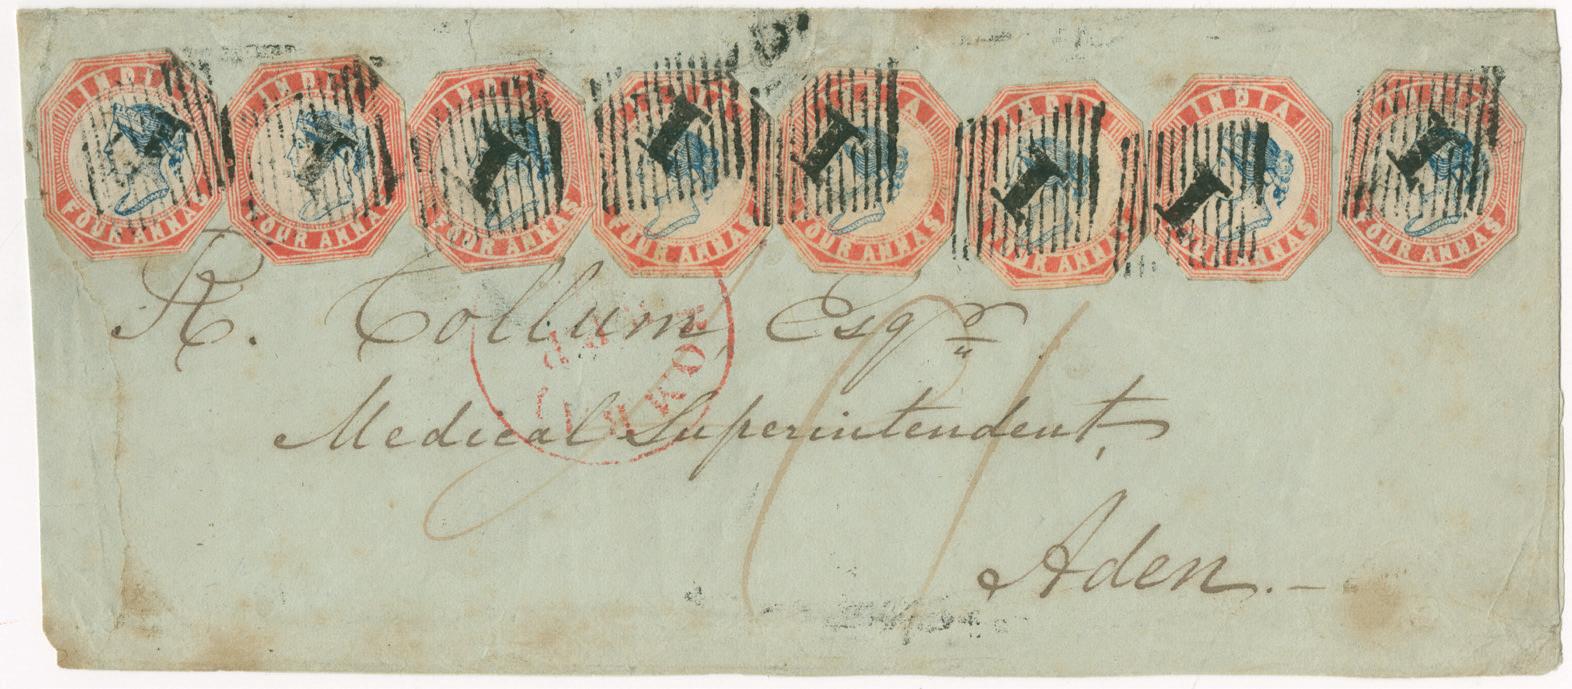 INDIA FOUR ANNAS
INDIA FOUR ANNAS
INDIA FOUR ANNAS
INDIA FOUR ANNAS
INDIA FOUR ANNAS
INDIA FOUR ANNAS
INDIA FOUR ANNAS
INDIA FOUR ANNAS
1 1 1 1 1 1 1 1
R. Collum, Esqr
Medical Superintendent,
Aden.